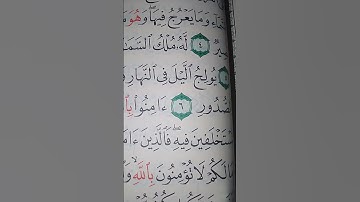 مَآءِ وَمَا يَعۡرُجُ فِيهَاۖ وَهُوَ
يرٌ ٤ لَّهُۥ مُلۡكُ ٱلسَّمَٰ
يُولِجُ ٱلَّيۡلَ فِي ٱلنَّهَارِ
صُّدُورِ ٦ ءَامِنُواْ بِٱ
سۡتَخۡلَفِينَ فِيهِۖ فَٱلَّذِينَ ءَامَ
الَكُمۡ لَا تُؤۡمِنُونَ بِٱللَّهِ